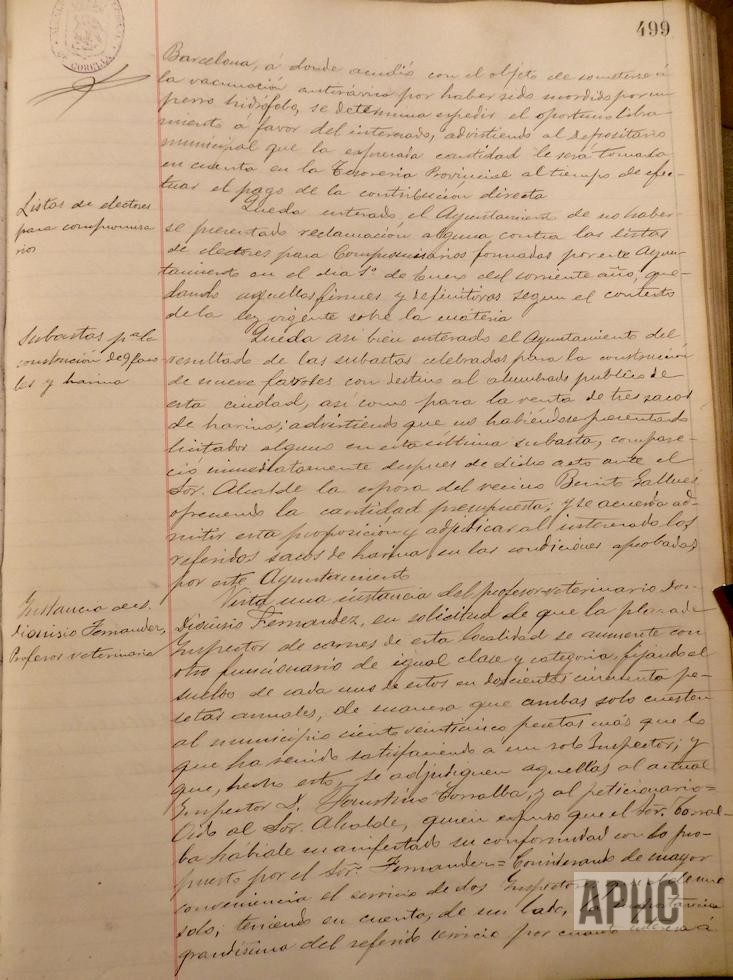 499
CORELLA
Barcelona, á donde acudió con el objeto de someterse á
la vacunación antirrábica por haber sido mordido por un
perro hidrófobo, se determina expedir el oportuno libra-
miento á favor del interesado, advirtiendo al depositario
municipal que la expresada cantidad le será tomada
en cuenta en la Tesorería Provincial al tiempo de efec-
tuar el pago de la contribución directa
Listas de electores
para compromisa
rios
Queda enterado el Ayuntamiento de no haber-
se presentado reclamación alguna contra las listas
de electores para Compromisarios formadas por este Ayun-
tamiento en el dia 1º de Enero del corriente año, que-
dando aquellas firmes y definitivas segun el contexto
de la ley vigente sobre la materia
Subastas pª la
construcción de 9 faro
les y harina
Queda asi bien enterado el Ayuntamiento del
resultado de las subastas celebradas para la construcción
de nueve faroles con destino al alumbrado publico de
esta ciudad, así como para la venta de tres sacos
de harina; advirtiendo que no habiéndose presentado
licitador alguno en esta última subasta, compare-
ció inmediatamente despues de dicho acto ante el
Sor. Alcalde la esposa del vecino Benito
ofreciendo la cantidad presupuesta; y se acuerda ad-
mitir esta proposición y adjudicar al interesado los
referidos sacos de harina en las condiciones aprobadas
por este Ayuntamiento
Instancia de D.
Dionisio Fernandez,
Profesor veterinario
Vista una instancia del profesor veterinario Don
Dionisio Fernandez, en solicitud de que la plaza de
Inspector de carnes de esta localidad se aumente con
otro funcionario de igual clase y categoria, fijando el
sueldo de cada uno de estos en doscientas cincuenta pe-
setas anuales, de manera que ambas solo cuesten
al municipio ciento veinticinco pesetas más que lo
que ha venido satisfaciendo a un solo Inspector; y
que, hecho esto, se adjudiquen aquellas al actual
Inspector D. Faustino Torralba, y al peticionario=
Oido al Sor. Alcalde, quien expuso que el Sor. Torral-
ba habiale manifestado su conformidad con lo pro-
puesto por el Sor. Fernandez= Considerando de mayor
conveniencia el servicio de dos Inspectores que el de uno
solo; teniendo en cuenta, de un lado, la importancia
grandísima del referido servicio por cuanto interesa á
APHC